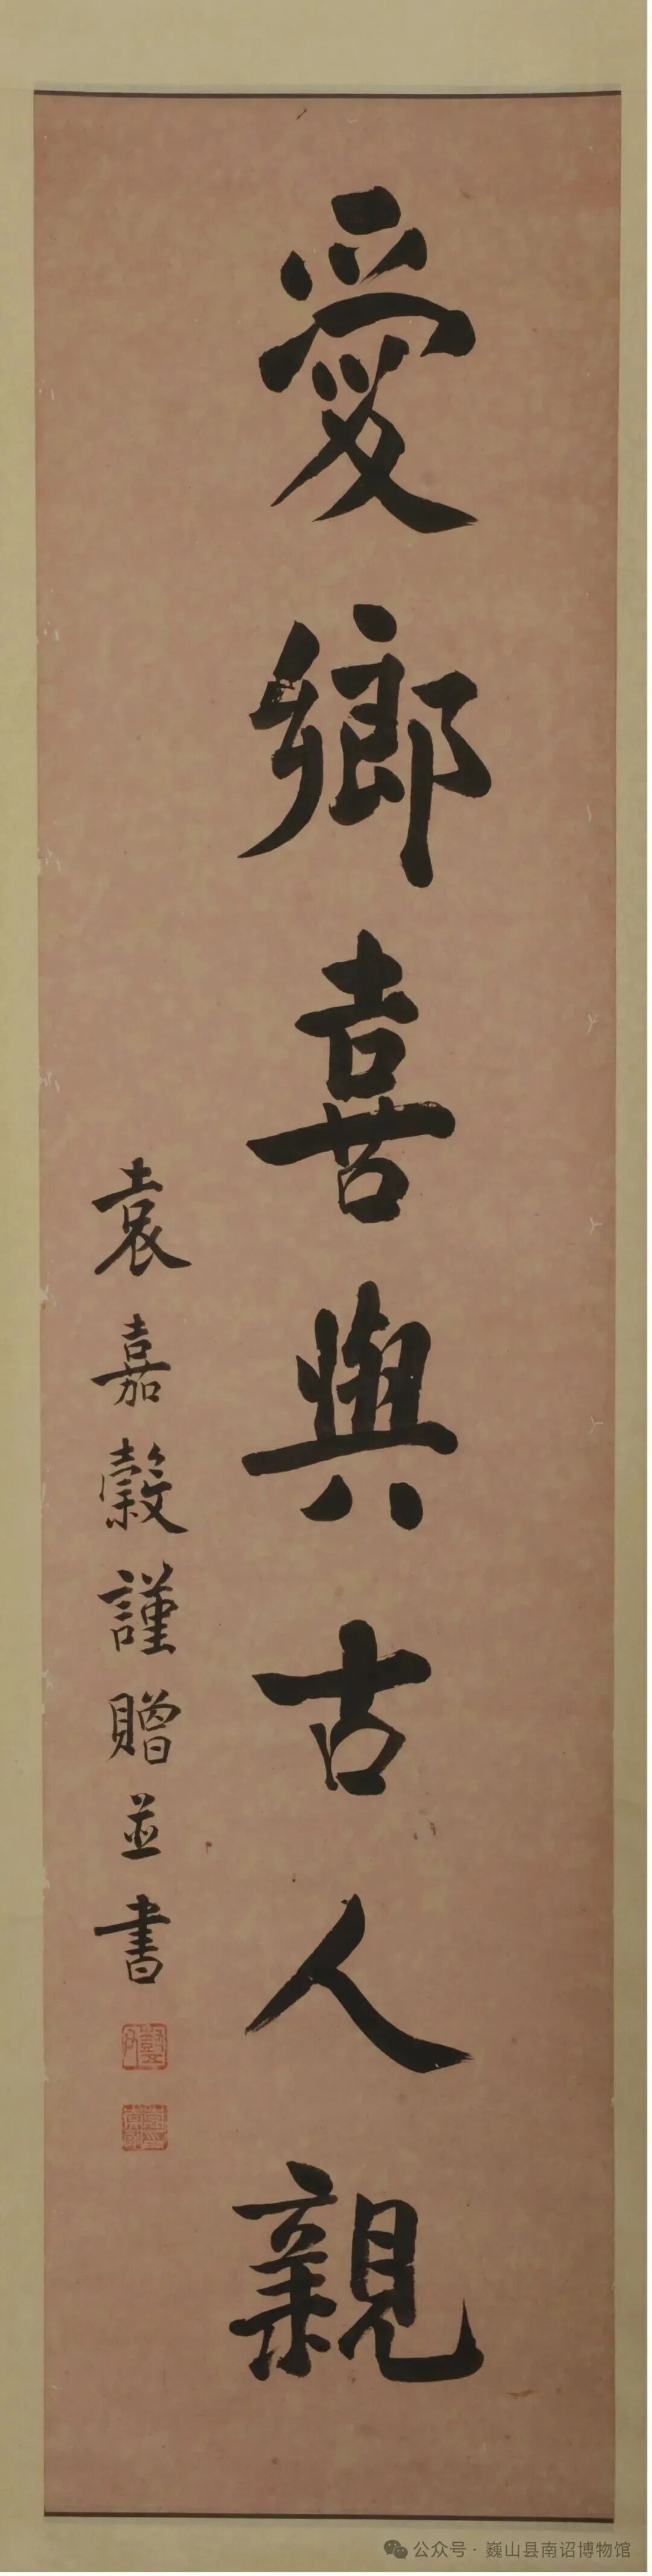 愛鄉喜與古人親
袁嘉穀謹贈並書
公众号·巍山县南诏博物馆